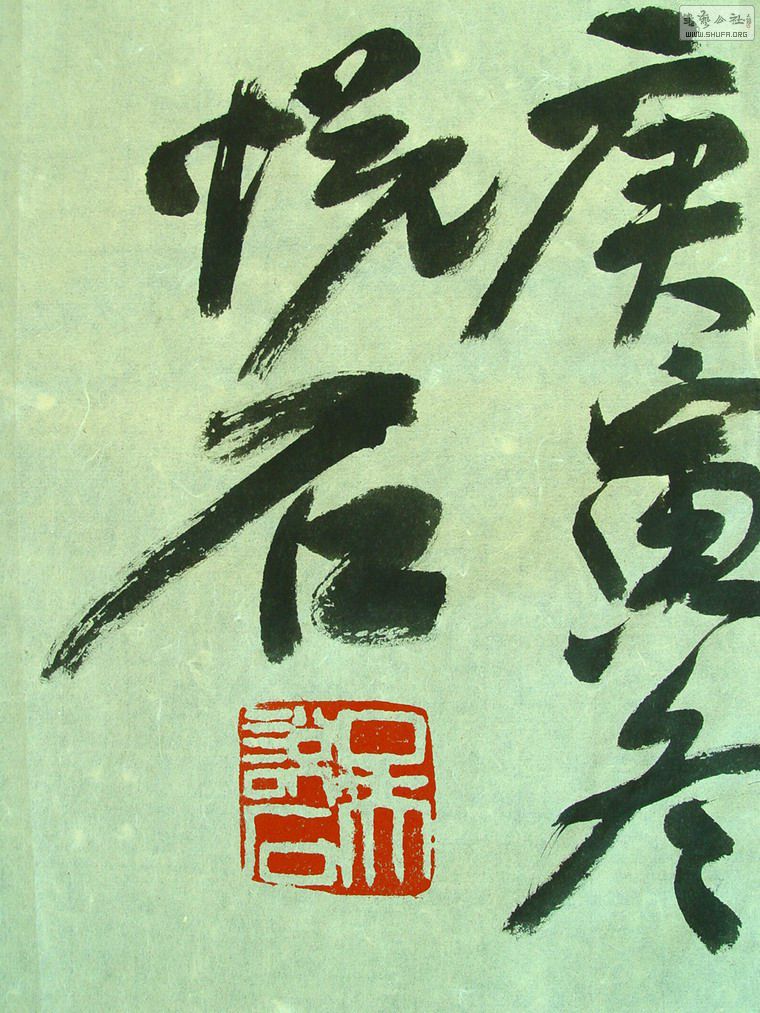 書藝公社
WWW.SHUFA.ORG
庚寅冬
悦石